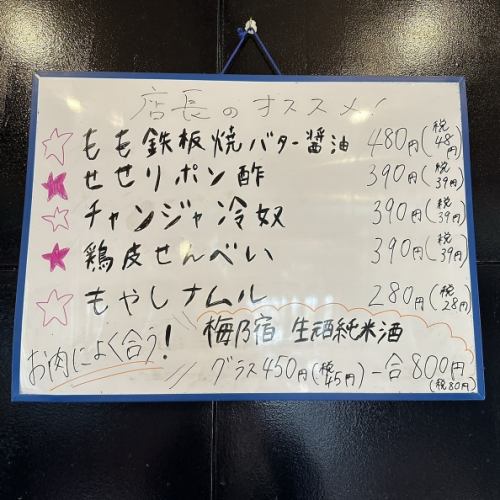 店長のオススメ!
☆ もも鉄板焼バター醤油 480円(税48円)
★ せせりポン酢 390円(税39円)
☆ チャンジャ冷奴 390円(税39円)
★ 鶏皮せんべい 390円(税39円)
☆ もやしナムル 280円(税28円)
お肉によく合う!
梅乃宿 生酛純米酒
グラス450円(税45円) 一合800円(税80円)